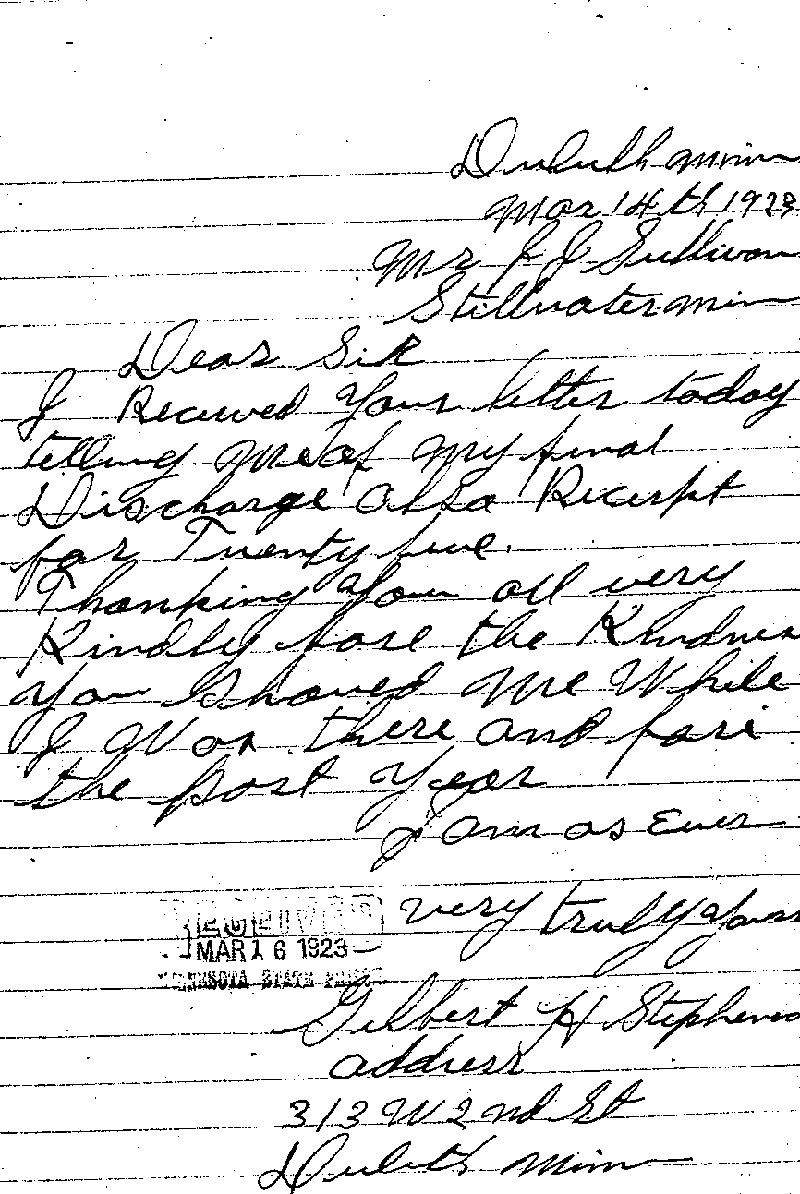 Duluth Minn
Mar 14th 1923
Mr J J Sullivan
Stillwater Minn
Dear Sir
I Received Your letter today
telling Me of My final
Discharge also Reciept
for Twenty five.
Thanking You all very
Kindly fore the Kindness
You Showed Me While
I Was there and fore
the Past Year
I am as Ever
Very truly Yours
RECEIVED
MAR 16 1923
MINNESOTA STATE PRISON
Gilbert H Stephens
address
313 W 2nd St
Duluth Minn